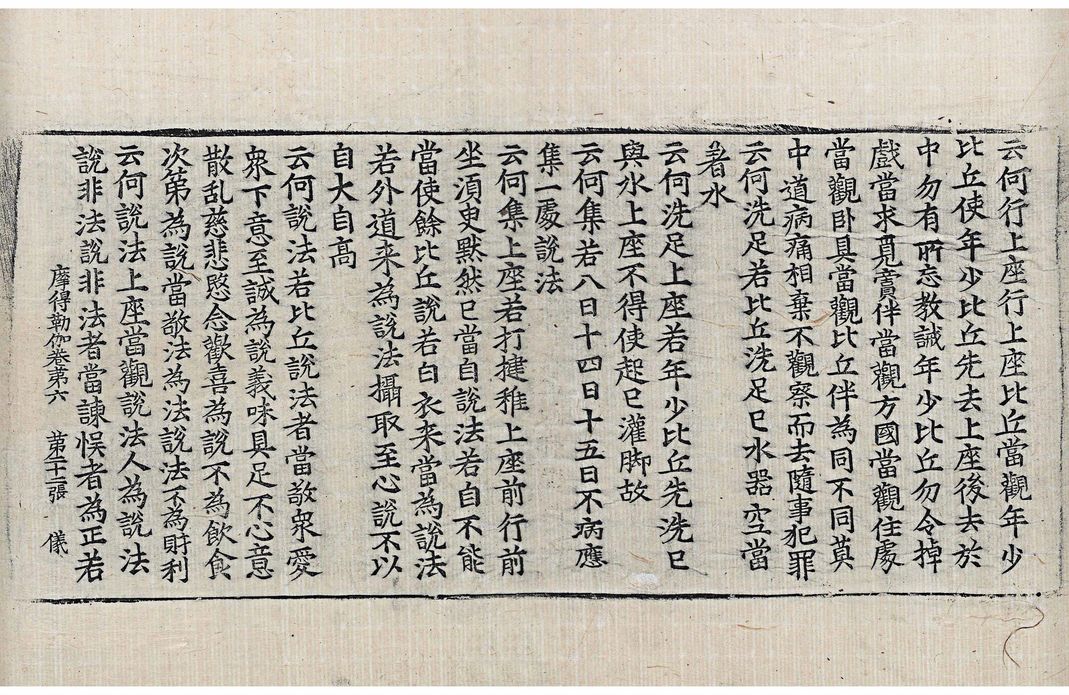 云何行上座行上座比丘當觀年少
比丘使年少比丘先去上座後去於
中勿有所忘教誡年少比丘勿令掉
戲當求覓賷伴當觀方國當觀住處
當觀卧具當觀比丘伴為同不同莫
中道病痛相棄不觀察而去隨事犯罪
云何洗足若比丘洗足已水器空當
著水
云何洗足上座若年少比丘先洗已
與水上座不得使起已灌脚故
云何集若八日十四日十五日不病應
集一處說法
云何集上座若打揵稚上座前行前
坐須臾黙然已當自說法若自不能
當使餘比丘說若白衣来當為說法
若外道来為說法攝取至心說不以
自大自高
云何說法若比丘說法者當敬衆愛
衆下意至誠為說義味具足不心意
散乱慈悲愍念歡喜為說不為飲食
次第為說當敬法為法說法不為財利
云何說法上座當觀說法人為說法
說非法說非法者當諫悮者為正若
摩得勒伽卷第六　第二十二張　儀